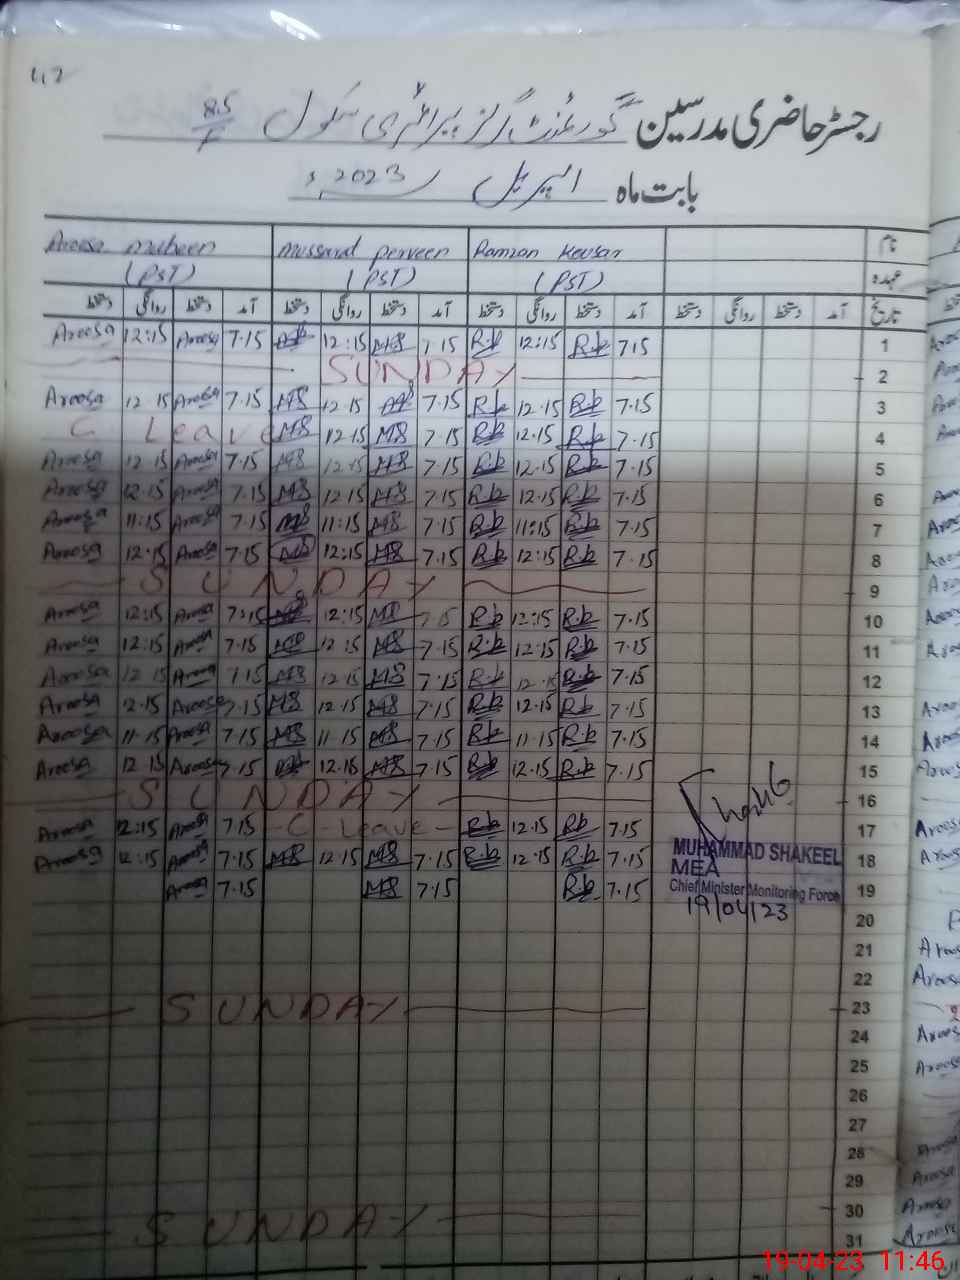 42
رجسٹر حاضری مدرسین گورنمنٹ گرلز پرائمری سکول 85/F
بابت ماہ اپریل 2023ء
Aroosa maheen Mussarat perveen Ramzan Kousar نام
(PST) (PST) (PST) عہدہ
دستخط روانگی دستخط آمد دستخط روانگی دستخط آمد دستخط روانگی دستخط آمد دستخط روانگی دستخط آمد تاریخ
Aroosa 12:15 Aroosa 7.15 12:15 MS 7.15 R.k 12:15 R.k 7.15 1
SUNDAY 2
Aroosa 12.15 Aroosa 7.15 MS 12.15 MS 7.15 R.k 12.15 R.k 7.15 3
C Leave MS 12.15 MS 7.15 R.k 12.15 R.k 7.15 4
Aroosa 12.15 Aroosa 7.15 MS 12.15 MS 7.15 R.k 12.15 R.k 7.15 5
Aroosa 12.15 Aroosa 7.15 MS 12.15 MS 7.15 R.k 12.15 R.k 7.15 6
Aroosa 11:15 Aroosa 7.15 MS 11:15 MS 7.15 R.k 11:15 R.k 7.15 7
Aroosa 12:15 Aroosa 7.15 MS 12:15 MS 7.15 R.k 12:15 R.k 7.15 8
SUNDAY 9
Aroosa 12:15 Aroosa 7:15 12:15 MS 7.15 R.k 12:15 R.k 7.15 10
Aroosa 12:15 Aroosa 7.15 MS 12:15 MS 7.15 R.k 12:15 R.k 7.15 11
Aroosa 12.15 Aroosa 7.15 MS 12.15 MS 7.15 R.k 12.15 R.k 7.15 12
Aroosa 12.15 Aroosa 7.15 MS 12.15 MS 7.15 R.k 12.15 R.k 7.15 13
Aroosa 11.15 Aroosa 7.15 MS 11.15 MS 7.15 R.k 11.15 R.k 7.15 14
Aroosa 12.15 Aroosa 7.15 12.15 MS 7.15 R.k 12.15 R.k 7.15 15
SUNDAY 16
Aroosa 12:15 Aroosa 7.15 C-Leave R.k 12.15 R.k 7.15 17
Aroosa 12:15 Aroosa 7.15 MS 12.15 MS 7.15 R.k 12.15 R.k 7.15 MUHAMMAD SHAKEEL 18
MEA
Aroosa 7.15 MS 7.15 R.k 7.15 Chief Minister Monitoring Force 19
19/04/23
20
21
22
SUNDAY 23
24
25
26
27
28
29
SUNDAY 30
31
19-04-23 11:46